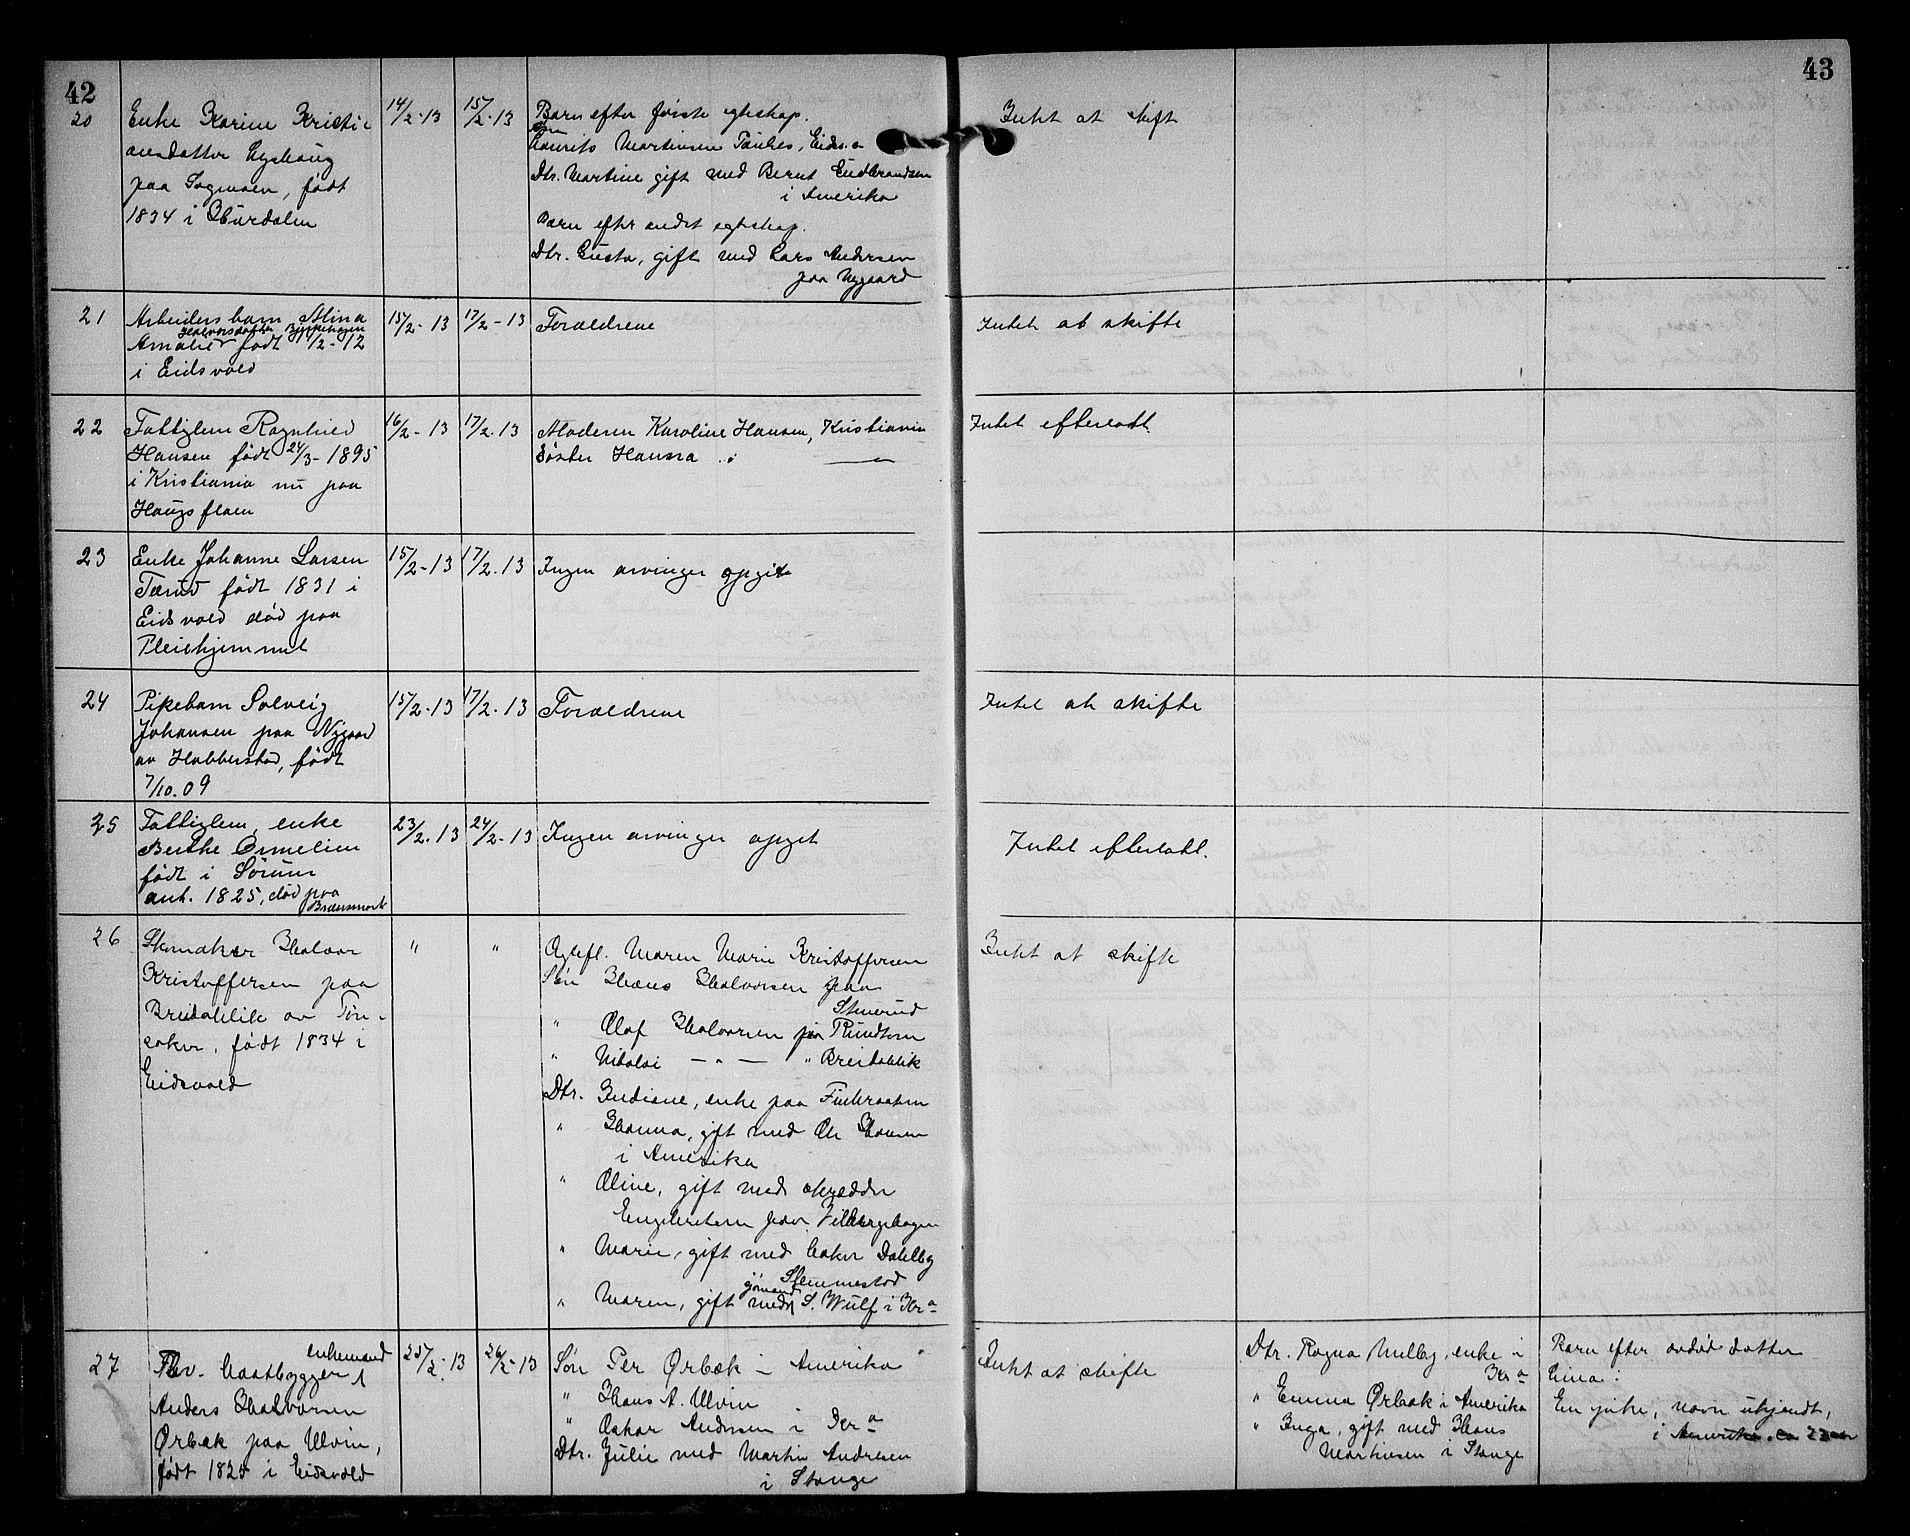 42
43
20
Enke Karine Kristi-
ansdatter Nyhaug
paa Sogmoen, født
1834 i Hurdalen
14/2-13
15/2-13
Barn efter første egteskap.
Søn
Laurits Martinsen Eidsv.
Dtr. Martine gift med Bernt Gudbrandsen
i Amerika
Barn efter andet egteskap.
Dtr. Gusta, gift med Lars Andersen
paa Nygaard
Intet at skift
21
Arbeidersbarn Alina
Halvorsdatter Bjerkehagen
Amalie født 11/2-12
i Eidsvold
15/2-13
17/2-13
Forældrene
Intet at skifte
22
Fattiglem Ragnhild
Hansen født 24/3-1895
i Kristiania nu paa
Haugsflaen
16/2-13
17/2.13
Moderen Karoline Hansen, Kristiania
Søster Hanna i — " —
Intet efterladt
23
Enke Johanne Larsen
Tærud født 1831 i
Eidsvold død paa
Pleiehjemmet
15/2-13
17/2.13
Ingen arvinger opgit
24
Pikebarn Solveig
Johansen paa Nygaard
av Habberstad, født
7/10.09
15/2.13
17/2.13
Forældrene
Intet at skifte
25
Fattiglem, enke
Berthe Ormelien
født i Sørum
ant. 1825, død paa
Brænsmork
23/2.13
24/2-13
Ingen arvinger opgit
Intet efterlatt.
26
Skomaker Halvor
Kristoffersen paa
Breidablik av Tøn-
saker, født 1834 i
Eidsvold
"
"
Egtefl. Maren Marie Kristoffersen
Søn Hans Halvorsen paa
Stenerud
" Olaf Halvorsen paa Rundtom
" Nikolai — " — " Breidablik
Dtr. Indiane, enke paa Finbraaten
" Hanna, gift med Ole Hansen
i Amerika
" Oline, gift med skrædder
Engebretsen paa Vilbergshagen
" Marie, gift med baker Dahlby
Stemmestad
gjørmand
" Maren, gift med S. Wulf i Kra
Intet at skifte
27
enkemand
Fhv. baatbygger
Anders Halvorsen
Ørbæk paa Ulvin,
født 1825 i Eidsvold
25/2-13
26/2-13
Søn Per Ørbæk i Amerika
" Hans A. Ulvin
" Oskar Andersen i Kra
Dtr. Julie med Martin Andresen
i Stange
Intet at skifte
Dtr. Ragna Melby, enke i
Kra
" Emma Ørbæk i Amerika
" Inga, gift med Hans
Martinsen i Stange
Barn efter avdød datter
Eina:
En pike, navn ukjendt,
i Amerika, ca 22 aar